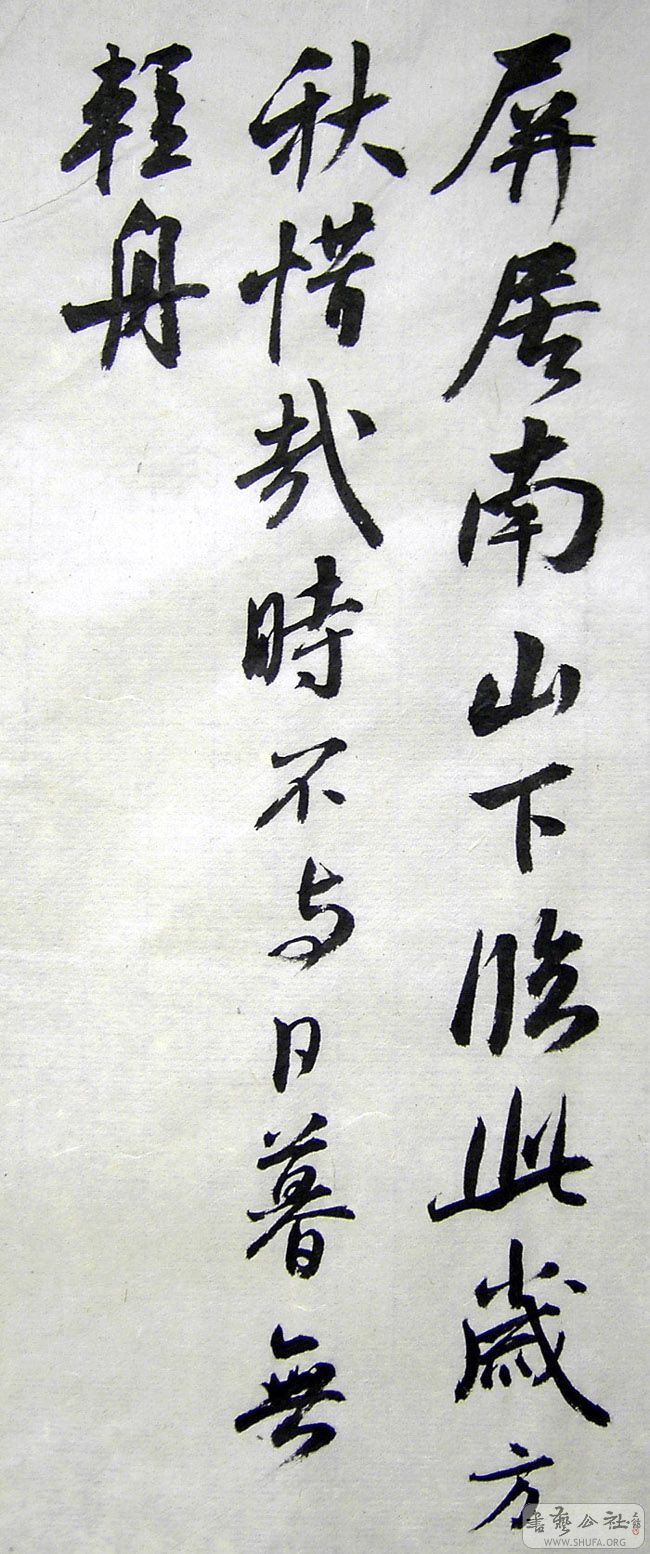 屏居南山下臨此歲方
秋惜哉時不与日暮無
輕舟
書藝公社
WWW.SHUFA.ORG